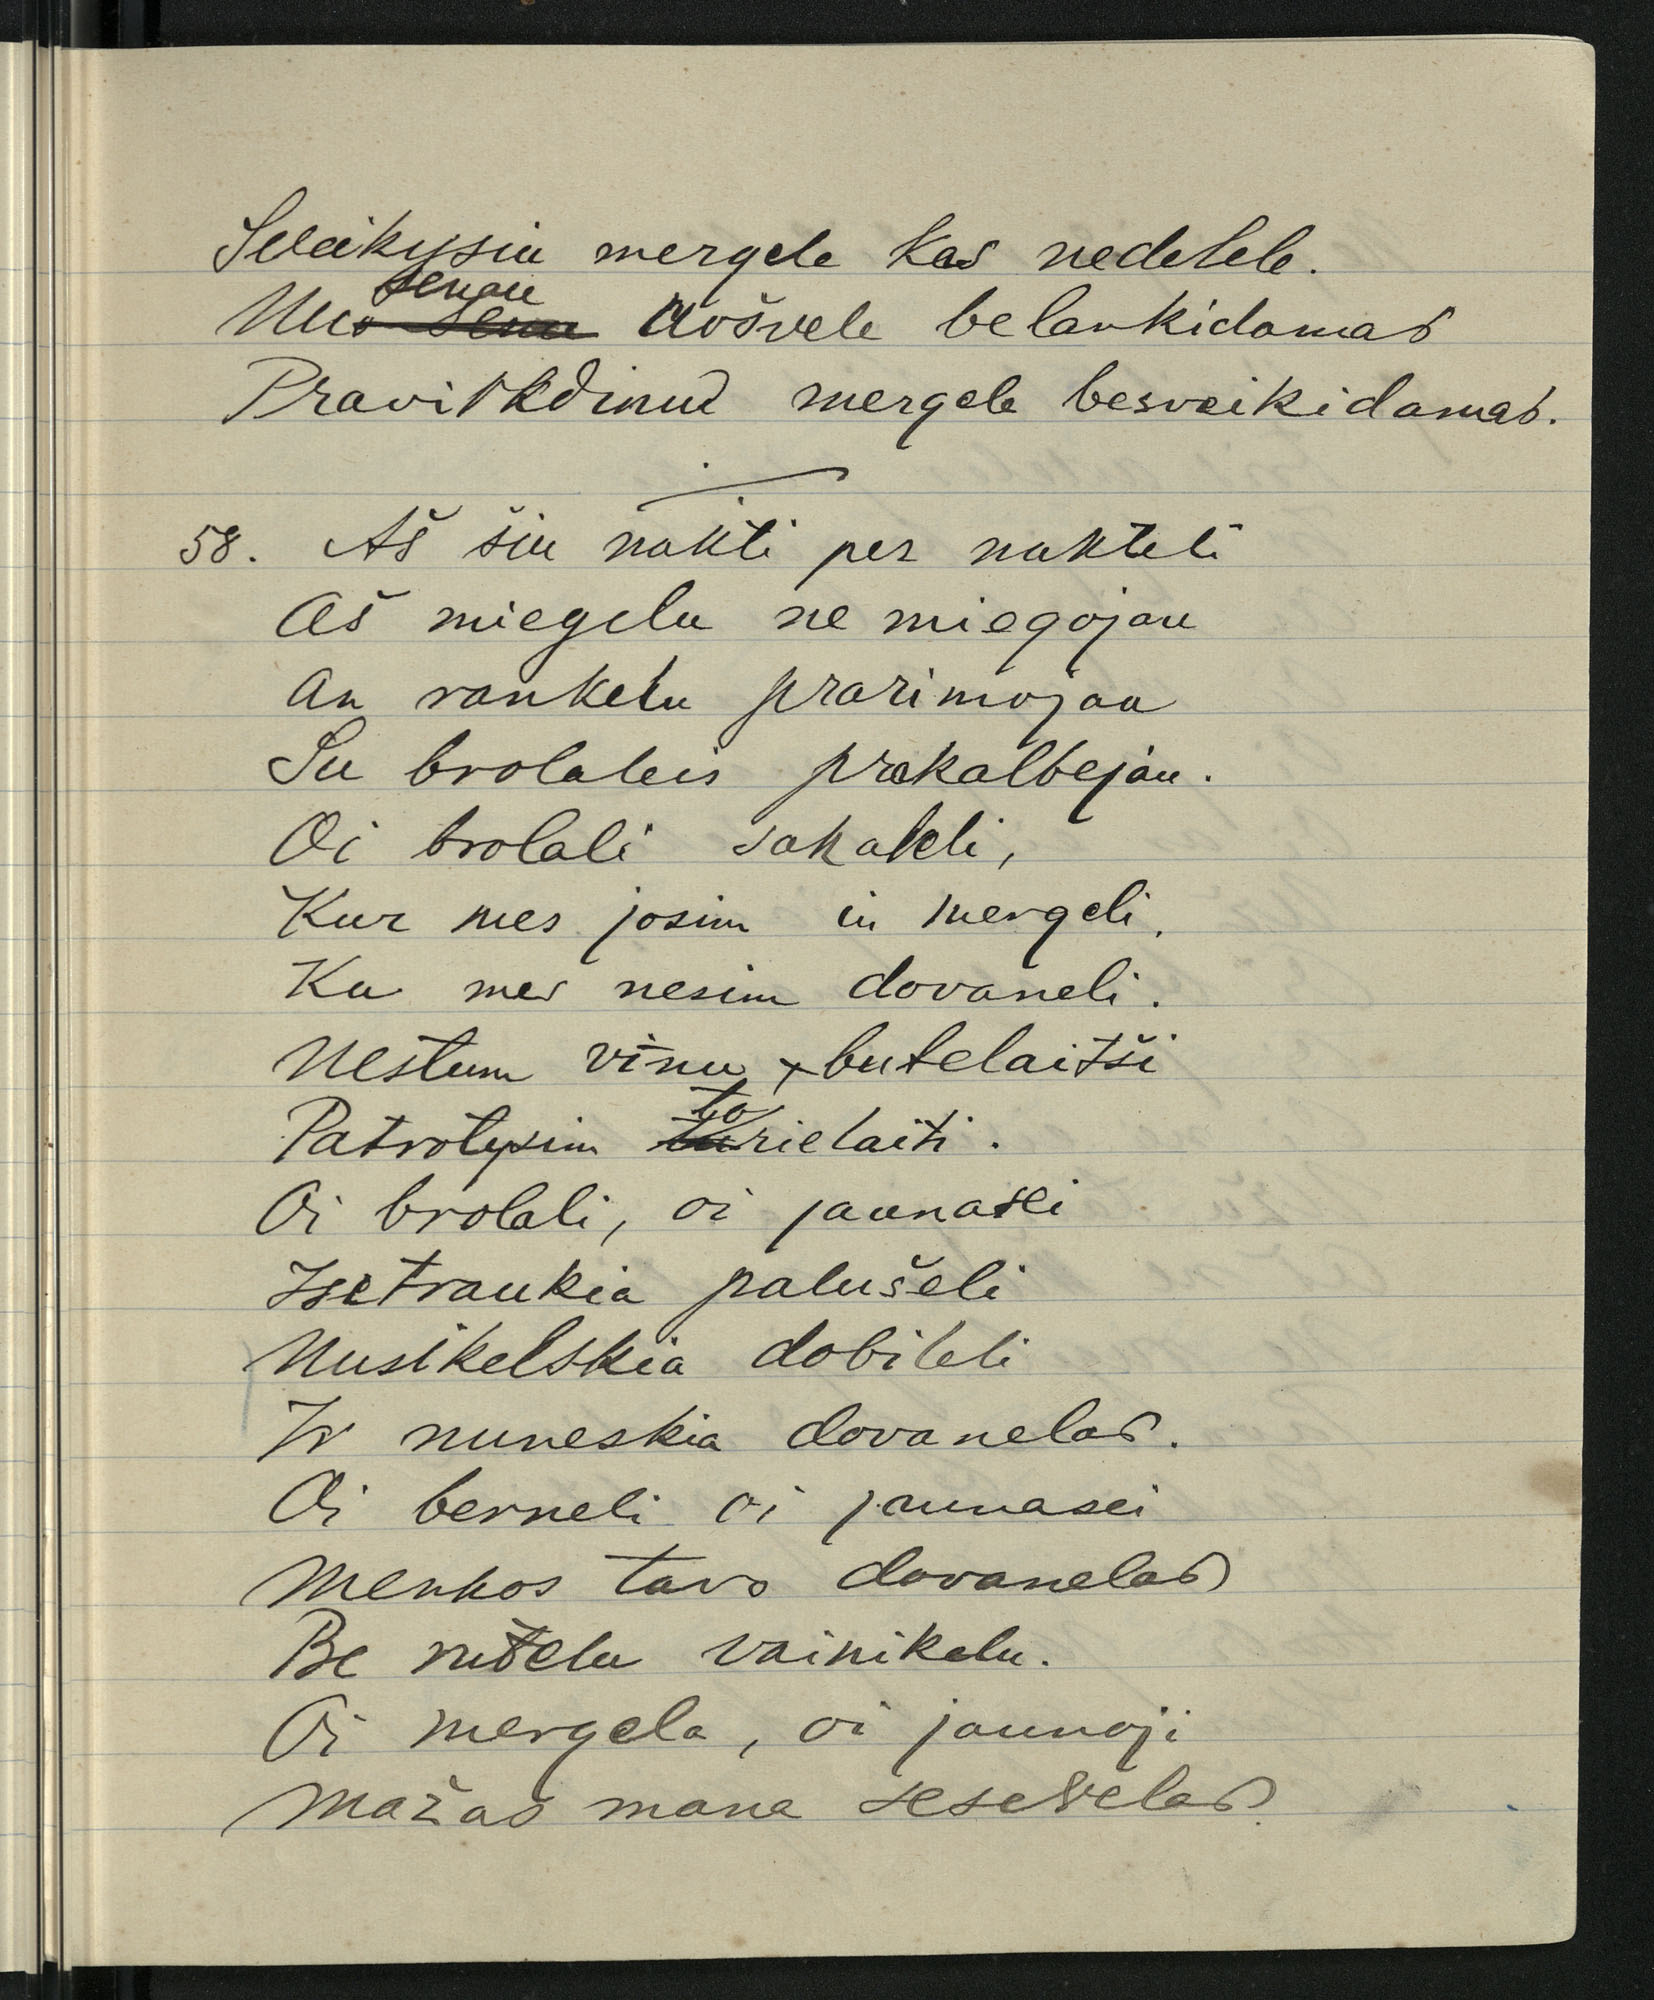 Sveikysiu mergele kas nedelele.
Nuo senau uošvele belankidamas
Pravirkdinuo mergele besveikidamas.
58. Aš šiu nakti per nakteli
Aš miegelu ne miegojau
An rankelu prarimojau
Su brolaleis prakalbejau.
Oi brolali sakaleli,
Kur mes josim in mergeli,
Ku mes nesim dovaneli.
Nestum vīnu butelaitši
Patrotysim torielaiti.
Oi brolali, oi jaunasei
Issetraukia palušeli
Nusikelskia dobileli
Ir nuneskia dovanelas.
Oi berneli oi jaunasei
Menkos tavo dovanelas
Be rutelu vainikelu.
Oi mergela, oi jaunoji
Mažas mana seserelas.